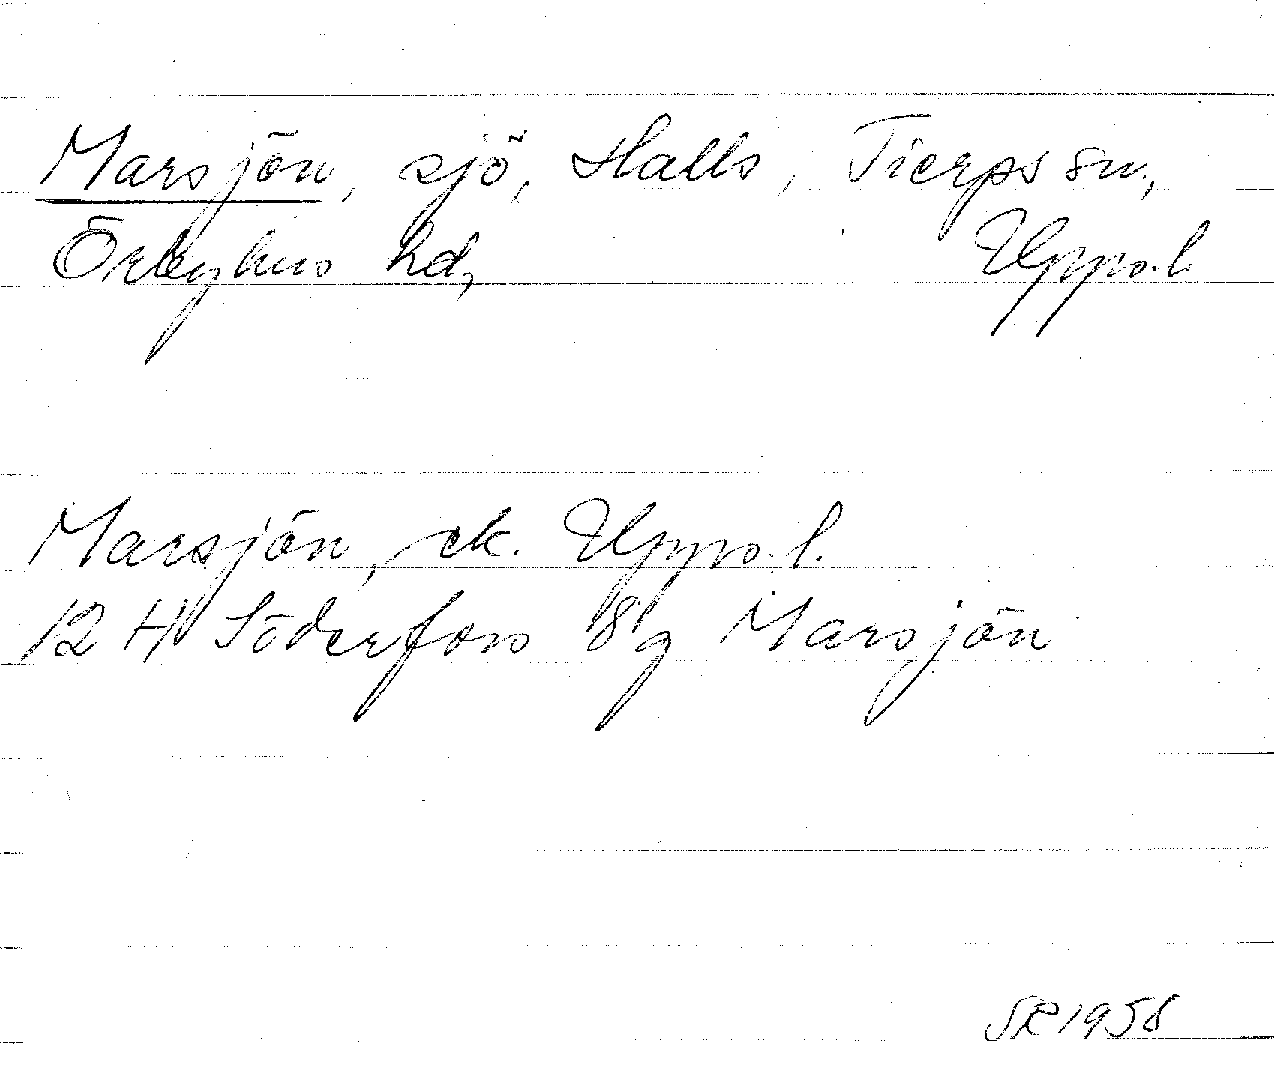 Marsjön, sjö, Halls, Tierps sn,
Örbyhus hd, Upps.l.
Marsjön, ek. Upps.l.
12 H Söderfors 8g Marsjön
SR 1958